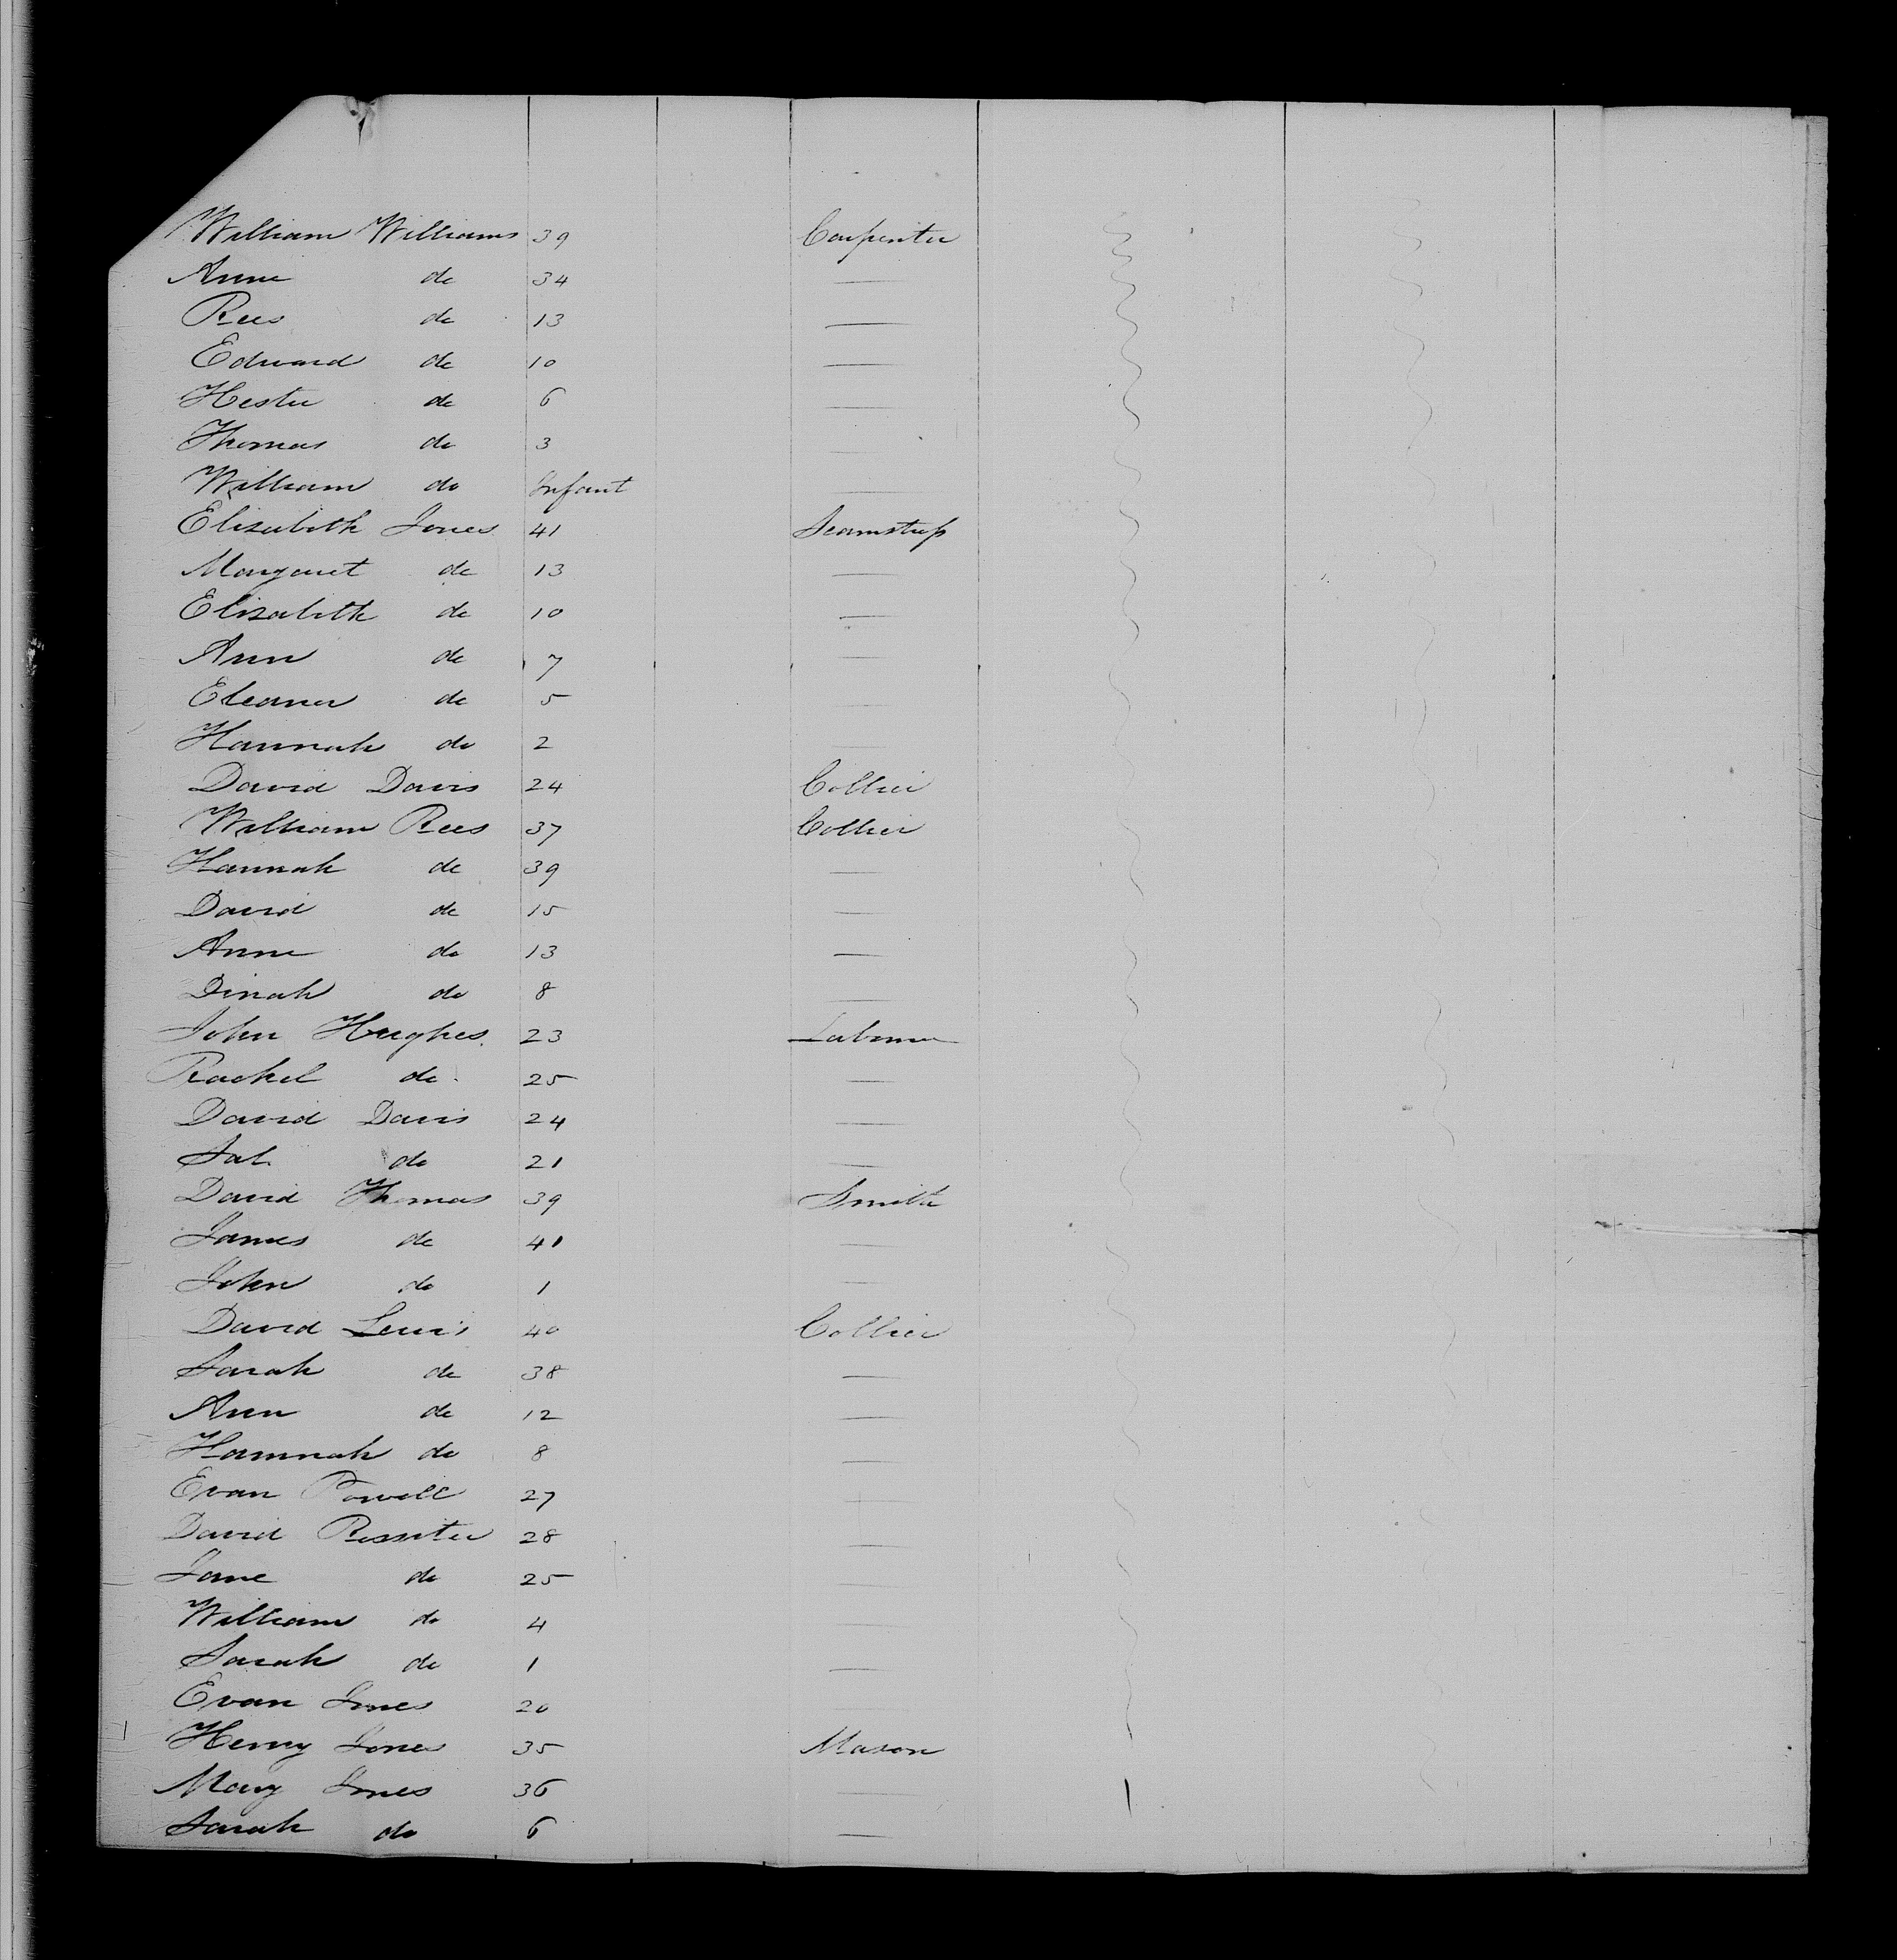 William Williams 39 Carpenter
Anne do 34
Rees do 13
Edward do 10
Hester do 6
Thomas do 3
William do Infant
Elizabeth Jones 41 Seamstress
Margaret do 13
Elizabeth do 10
Ann do 7
Eleanor do 5
Hannah do 2
David Davis 24 Collier
William Rees 37 Collier
Hannah do 39
David do 15
Anne do 13
Dinah do 8
John Hughes 23 Labourer
Rachel do 25
David Davis 24
do 21
David Thomas 39 Smith
James do 41
John do 1
David Lewis 40 Collier
Sarah do 38
Ann do 12
Hannah do 8
Evan Powell 27
David Rossiter 28
Jane do 25
William do 4
Sarah do 1
Evan Jones 20
Henry Jones 35 Mason
Mary Jones 36
Sarah do 6